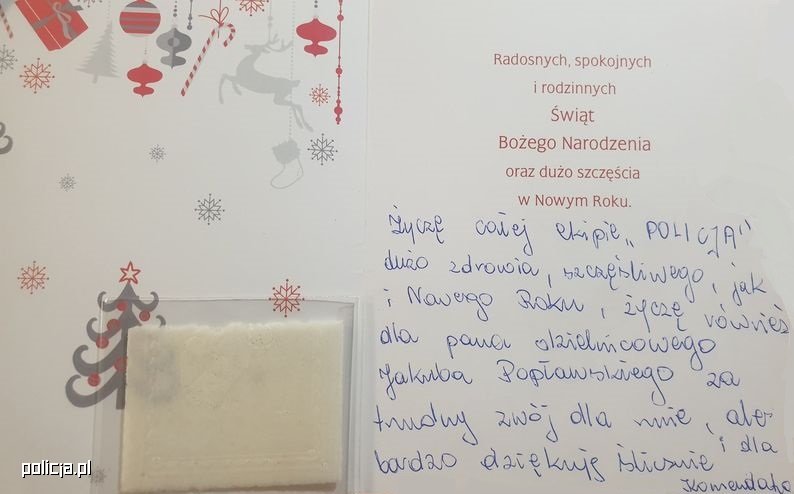 Radosnych, spokojnych
i rodzinnych
Świąt
Bożego Narodzenia
oraz dużo szczęścia
w Nowym Roku.
Życzę całej ekipie „POLICJA"
dużo zdrowia, szczęśliwego, jak
i Nowego Roku, życzę również
dla pana dzielnicowego
Jakuba Popławskiego za
trudny zwój dla mnie, ale
bardzo dziękuję ślicznie i dla
Komendata
policja.pl